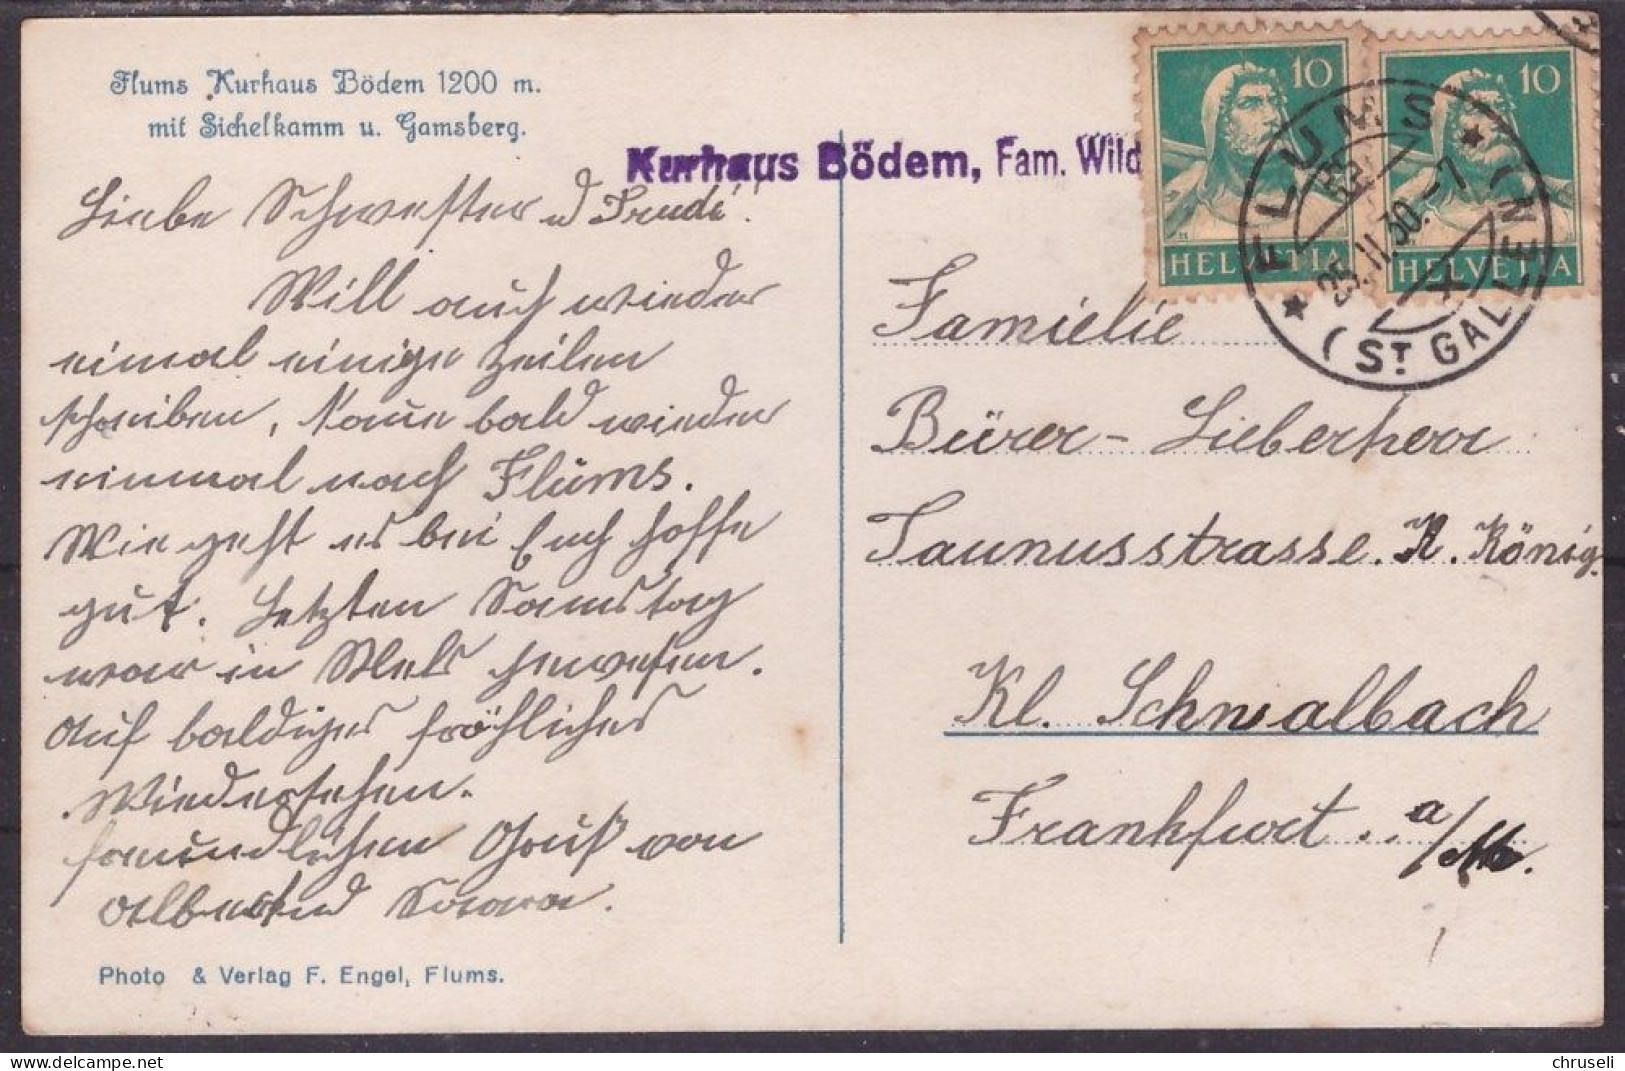 Flums Kurhaus Bödem 1200 m.
mit Sichelkamm u. Gamsberg.
Kurhaus Bödem, Fam. Wild
Liebe Schwester u Trudi!
Will auch wieder
einmal einige Zeilen
schreiben, komme bald wieder
einmal nach Flums.
Wie geht es bei Euch hoffe
gut. Letzten Samstag
war in Mels gewesen.
Auf baldiges fröhliches
Wiedersehen.
freundlichen Gruß von
Albert und
Photo & Verlag F. Engel, Flums.
10
HELVETIA
10
HELVETIA
FLUMS
25.II.30.-7
(ST GALLEN)
Familie
Bürer-Lieberherr
Taunusstrasse. K. König.
Kl. Schwalbach
Frankfurt. a/M.
chruseli